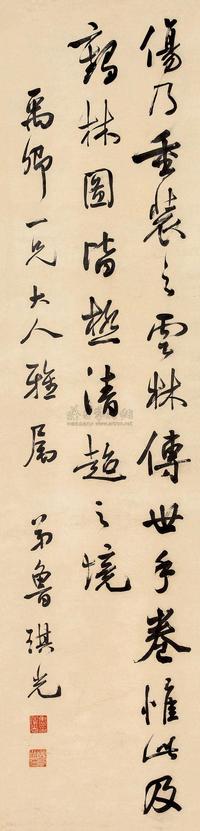 傷乃重裝之雲林傳世手卷惟此及
鶴林圖皆極清超之境
禹卿一兄大人雅屬　弟魯琪光